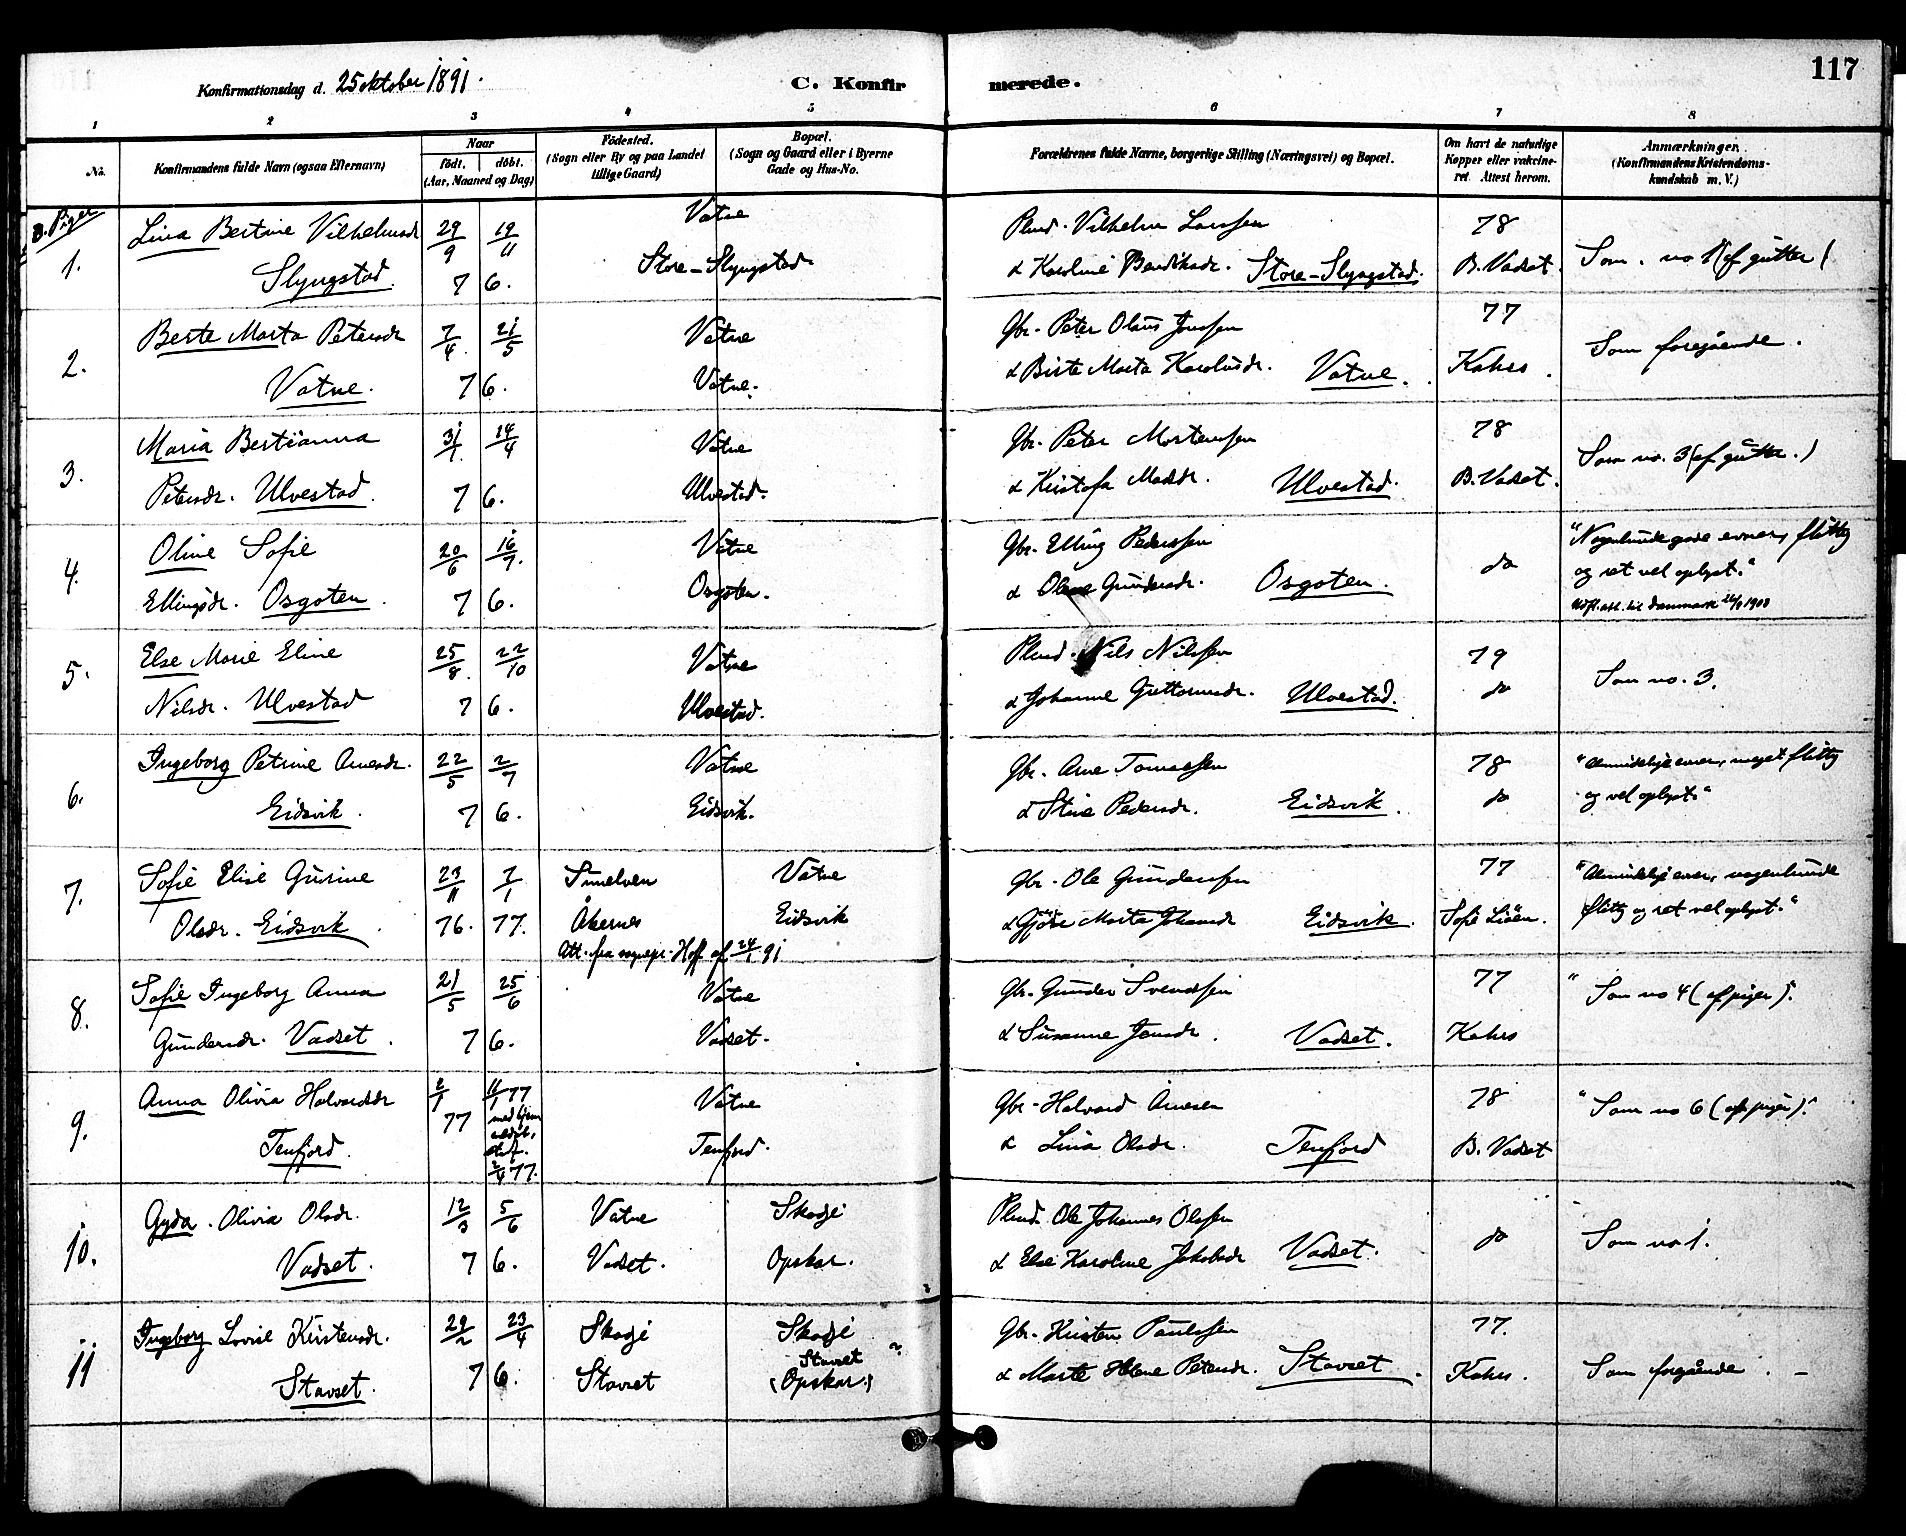 117
Konfirmationsdag d. 25 oktober 1891.
C. Konfirmerede.
1 2 3 4 5 6 7 8
No.
Konfirmandens fulde Navn (ogsaa Efternavn)
Naar
födt. döbt.
(Aar, Maaned og Dag)
Födested.
(Sogn eller By og paa Landet
tillige Gaard)
Bopæl.
(Sogn og Gaard eller i Byerne
Gade og Hus-No.
Forældrenes fulde Navne, borgerlige Stilling (Næringsvei) og Bopæl.
Om havt de naturlige
Kopper eller vakcine-
ret Attest herom.
Anmærkninger.
(Konfirmandens Kristendoms-
kundskab m. V.)
B. Piger
1. Lina Bertine Vilhelmsdr 29/9 19/11 Vatne Plmd. Vilhelm Larssen 78 Som no 1 (af gutter)
Slyngstad. 7 6. Store-Slyngstad & Karoline Bendiksdr. Store-Slyngstad. B. Vadset.
2. Berte Marta Petersdr 7/4 21/5 Vatne Gbr. Peter Olaus Jenssen 77 Som foregående.
Vatne. 7 6. Vatne. & Birte Marta Karolusdr. Vatne. Kahrs.
3. Maria Bertianna 31/1 14/4 Vatne Gbr. Peter Mortenssen 78 Som no. 3 (af gutter.)
Petersdr. Ulvestad. 7 6. Ulvestad. & Kristofa Madsdr. Ulvestad. B. Vadset.
4. Oline Sofie 20/6 16/7 Vatne Gbr. Elling Pederssen do "Nogenlunde gode evner, flittig
Ellingsdr. Osgoten. 7 6. Osgoten. & Olene Gundersdr. Osgoten. og ret vel oplyst."
Udfl. att. til Danmark 1908
5. Else Marie Eline 25/8 22/10 Vatne Plmd. Nils Nilssen 79 Som no. 3.
Nilsdr. Ulvestad 7 6. Ulvestad. & Johanne Guttormsdr. Ulvestad. do
6. Ingeborg Petrine Arnesdr. 22/5 2/7 Vatne Gbr. Arne Tomassen 78 "Almindelige evner, meget flittig
Eidsvik. 7 6. Eidsvik. & Stine Pedersdr. Eidsvik. do og vel oplyst."
7. Sofie Elise Gurine 23/11 7/1 Sunelven Vatne Gbr. Ole Gunderssen 77 "Almindelige evner, nogenlunde
Olsdr. Eidsvik. 76. 77. Åkernes Eidsvik & Gjöre Marta Johansdr Eidsvik. Sofie Liåen. flittig og ret vel oplyst."
Att. fra sognepr. Hoff af 24/1 91
8. Sofie Ingeborg Anna 21/5 25/6 Vatne Gbr. Gunder Svendssen 77 "Som no 4 (af piger)."
Gundersdr. Vadset. 7 6. Vadset. & Susanne Jensdr. Vadset. Kahrs
9. Anna Olivia Halvardsdr 2/1 11/1 77 Vatne Gbr. Halvard Arnesen 78 "Som no 6 (af piger)."
Tenfjord. 77 Tenfjord. & Lina Olsdr. Tenfjord B. Vadset
77.
10. Gyda Olivia Olsdr. 12/3 5/6 Vatne Skodje Plmd. Ole Johannes Olssen do Som no 1.
Vadset. 7 6. Vadset. Opskar. & Else Karoline Jakobsdr Vadset.
11 Ingeborg Lovise Kristensdr. 29/2 23/4 Skodje Skodje Gbr. Kristen Paulssen 77. Som foregående.
Stavset. 7 6. Stavset Stavset (Opskar.) & Marte Helene Petersdr. Stavset. Kahrs.